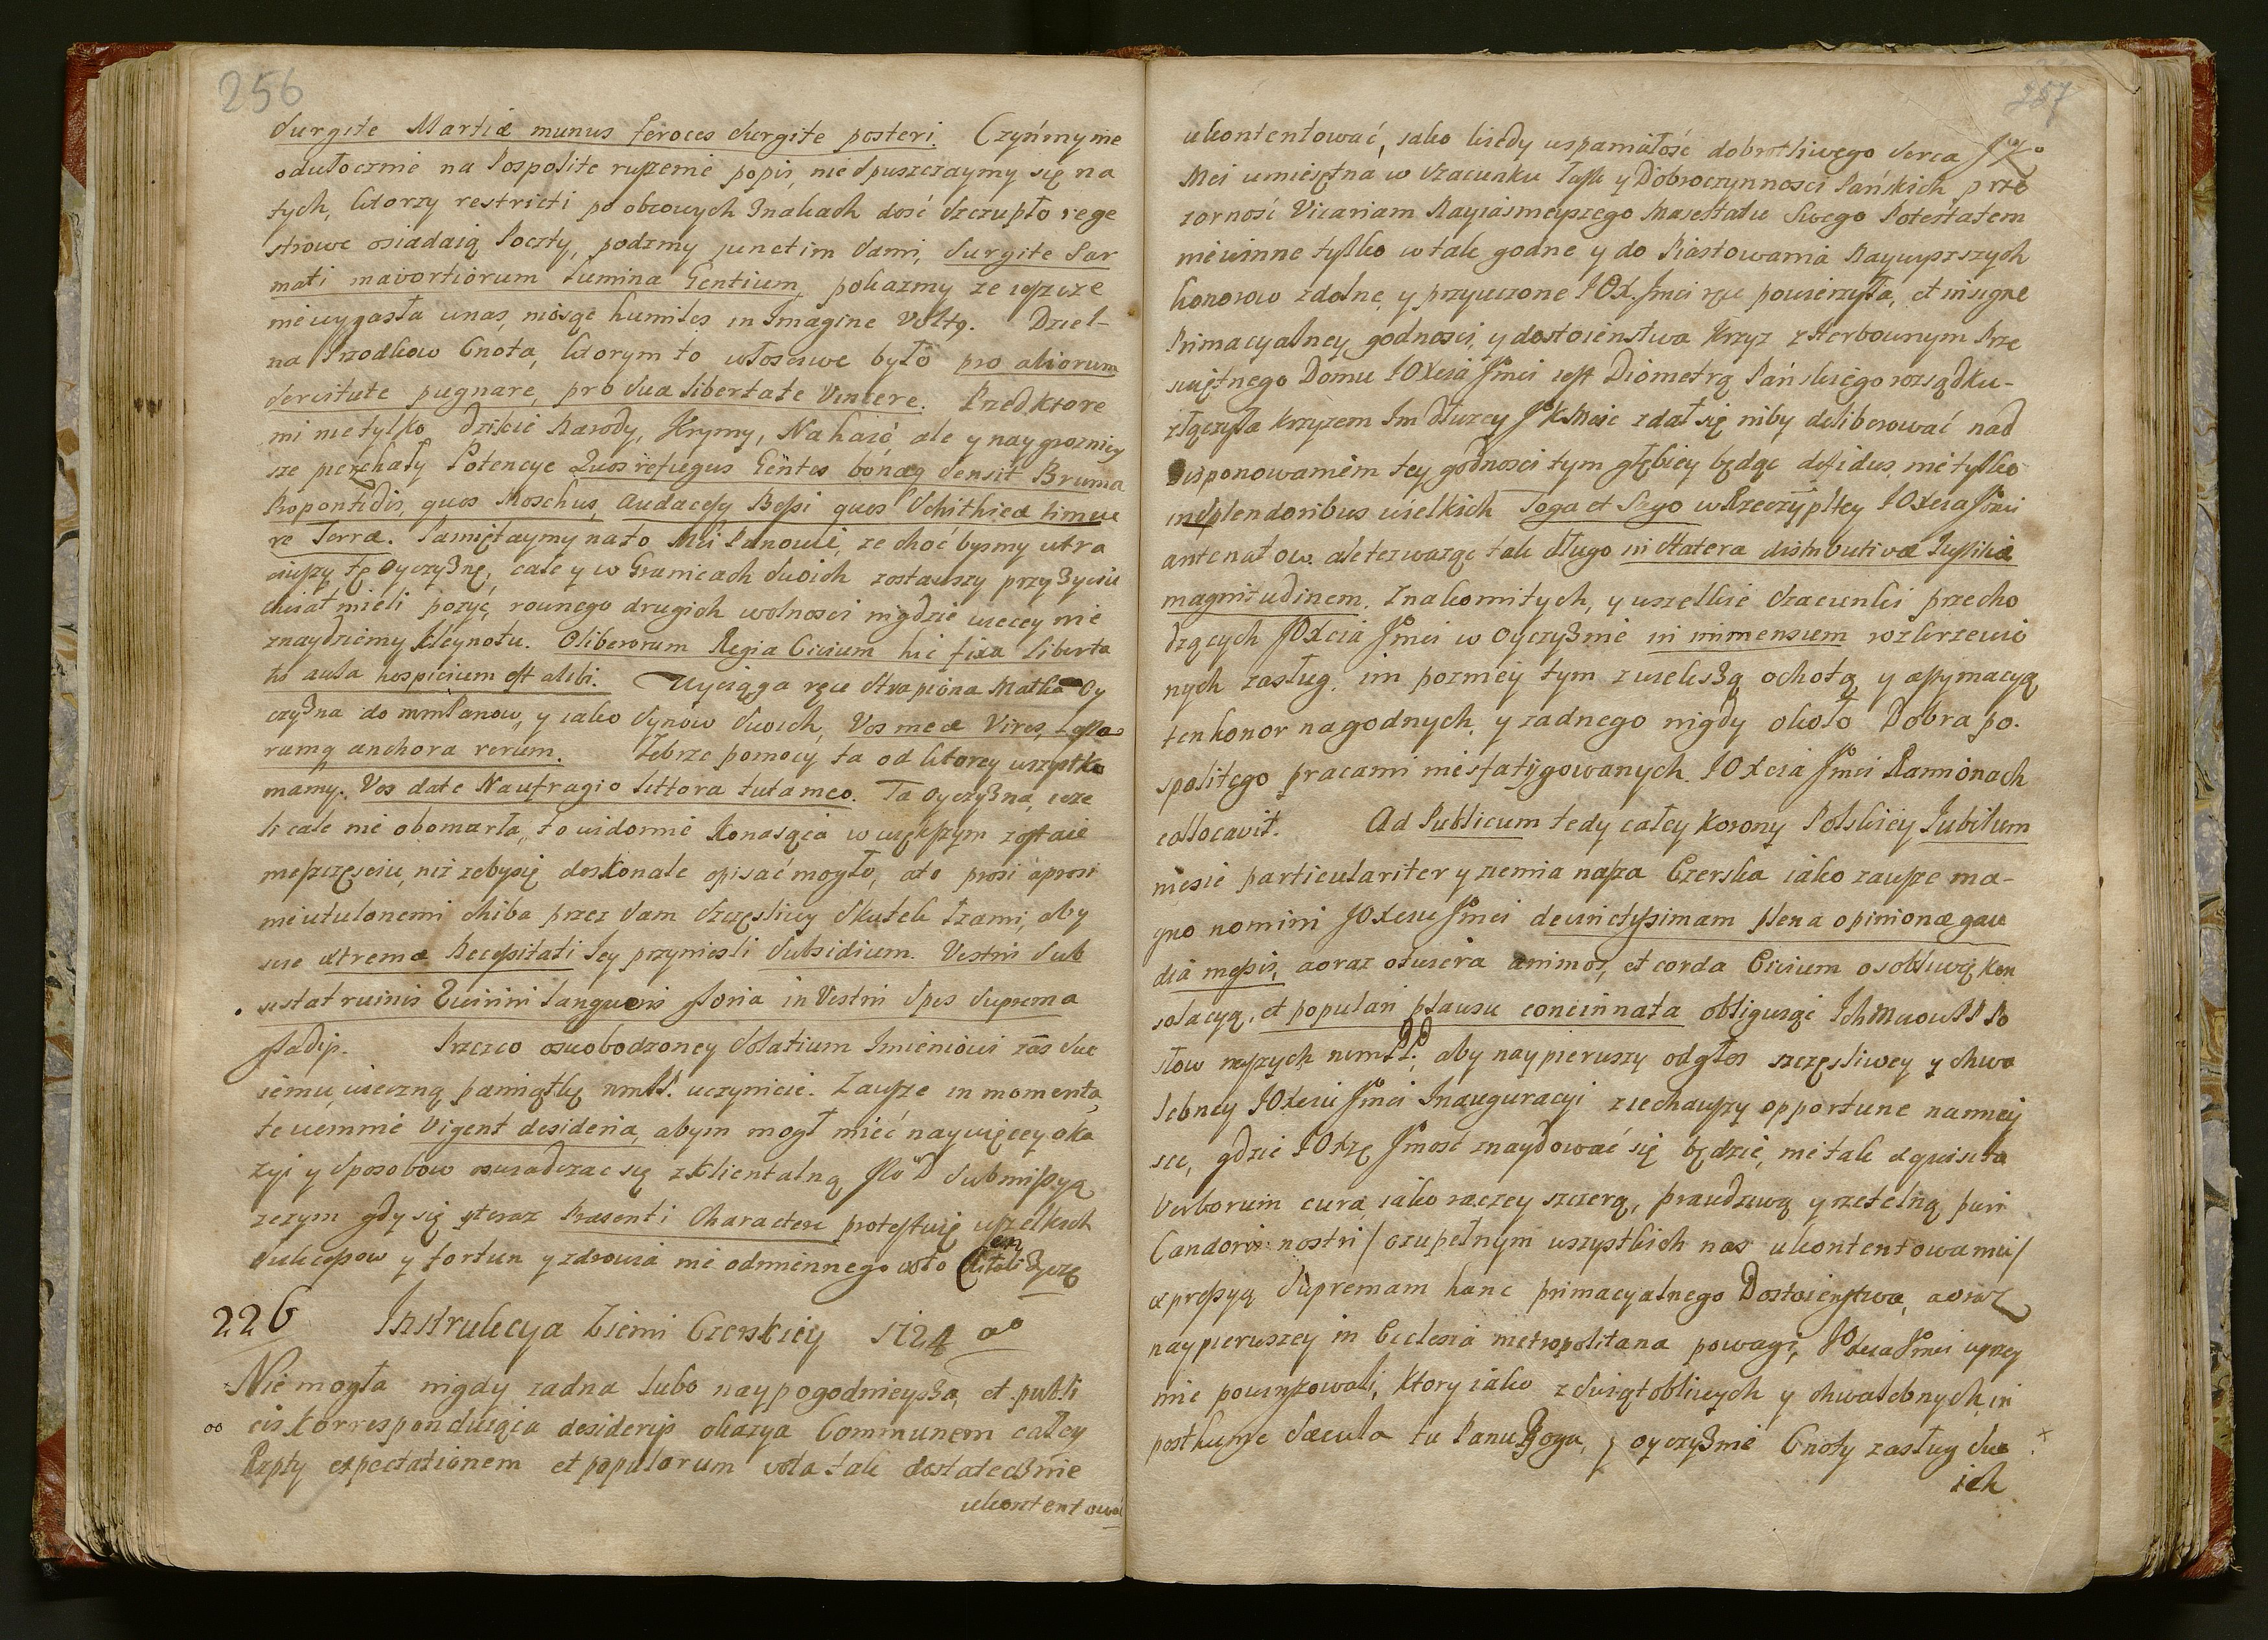 256
Surgite Martiæ munus feroces Surgite posteri. Czyńmy nie
odwłocznie na Pospolite ruszenie popis, nie Spuszczaymy się na
tych, ktorzy restricti po obcowych Znakach dość Szczupło rege
strowe osiadaią Poczty, podzmy junctim Sami, Surgite Sar
mati mavortiorum Lumina Gentium, pokazmy ze ieszcze
nie wygasła w nas, niosąc humiles in Imagine Dziel-
na Przodkow Cnota, ktorym to własciwe było pro aliorum
Servitute pugnare, pro Sua libertate Vincere. Przed ktore
mi nie tylko dzikie Narody, Krymy, Nahaić, ale y naygrozniey
sze pierzchały Potencye Quos refugus Gentes Sensit Bruma
Propontidis, quos Moschus, audaces Bessi quos Schithicæ timue
re Terræ. Pamiętaymy na to Mści Panowie, ze choć bysmy utra
ciwszy tę Oyczyznę, cale y w Granicach Swoich zostawszy przy Zyciu
chciał mieli pozyć, rownego drugich wolnosci nigdzie wiecey nie
znaydziemy Kleynotu. O liberorum Regia Civium hic fixa Liberta
tis aula hospicium est alibi. Wyciąga ręce Strapiona Matka Oy
czyzna do mmPanow, y iako Synow Swoich, Vos meæ Vires,
rumq anchora rerum. Zebrze pomocy ta od ktorey wszystko
mamy. Vos date Naufragio littora tuta meo. Ta Oyczyzna, ieze
li cale nie obomarła, to widomie Konaiąca w większym zostaie
nieszczęsciu, niz zeby się doskonale opisać mogło, oto prosi a prosi
nieutulonemi chiba przez Sam Szczęsliwy Skutek Łzami, aby
scie extremæ Necessitati Jey przyniesli Subsidium. Vestris Sub
sistat ruinis Quirini Sanguinis gloria in Vestri Spes Suprema
gladijs. Przezco oswobodzoney Solatium Imieniowi zas Swo
iemu, wieczną pamiątkę WmPP. uczynicie. Zawsze in momenta,
te wemnie Vigent desideria, abym mogł mieć naywięcey oka
zyi y Sposobow oswiadczac się z klientalną Submissyą
zczym gdy się y teraz Præsenti Charactere protestuię wszelkich
Sukcessow y fortun y zdrowia nie odmiennego voto
226 Instrukcya Ziemi Czerskiey 1724
Nie mogła nigdy zadna lubo naypogodnieysza, et publi
cis korresponduiąca desiderijs okazya Communem całey
Rzpty expectationem et populorum vota tak dostatecznie
ukontentować

257
ukontentować, iako kiedy wspaniałość dobrotliwego Serca
Mci umieiętna w Szacunku Łask y Dobroczynnosci Pańskich, prze
zorność Vicariam Nayiasnieyszego Maiestatu Swego Potestatem
nie w inne tylko w tak godne y do Piastowania Naywyzszych
honorow zdolne, y przyuczone JOX. Jmci ręce powierzyła, et insigne
Primacyalney godnosci, y dostoienstwa Krzyz z Herbownym Prze
swiętnego Domu JOXcia Jmci iest Diometrą Pańskiego rozsądku-
złączyła Krzyzem Im dłuzey JKMośc zdał się niby deliberować nad
Disponowaniem tey godnosci tym głębiey będąc defidus, nie tylko
in Splendoribus wielkich Toga et Sago w Rzeczypltey JOXcia Jmci
antenatow. ale tez waząc tak długo in Statera distributivæ Justitiæ
magnitudinem. Znakomitych, y wszelkie Szacunki przecho
dzących JOXcia Jmci w Oyczyznie in immensum rozkrzewio
nych zasług. im pozniey tym z większą ochotą y apymacyą
ten honor na godnych, y zadnego nigdy około Dobra po.
spolitego pracami niesfatygowanych JOXcia Jmci Ramionach
collocavit. Ad Publicum tedy całey Korony Polskiey Jubilum
niesie particulariter y ziemia nasza Czerska iako zawsze ma-
gno nomini JOXciu Jmci devinctissimam plena opinionæ gau
dia messis, a oraz otwiera animos, et corda Civium osobliwą kon
solacyą, et populari plausu concinnata obliguiąc Ich Po
słow naszych, aby naypierwszy odgłos szczęsliwey y chwa
lebney JOXciu Jmci Inauguracyi ziechawszy opportune na miey
sce, gdzie JOXzę Jmość znaydować się będzie, nie tak exquisita
Verborum cura, iako raczey szczerą, prawdziwą y rzetelną puri
Candoris nostri / ozupełnym wszystkich nas ukontentowaniu/
expressyą Supremam hanc primacyalnego Dostoienstwa, a oraz
naypierwszey in Ecclesia metropolitana powagi, JOXcia Jmci uprzey
mie powinszowali, ktory iako z Swiątobliwych y chwalebnych, in
posthume Sæcula tu Panu Bogu, y oyczyznie Cnoty zasług Swo
ich